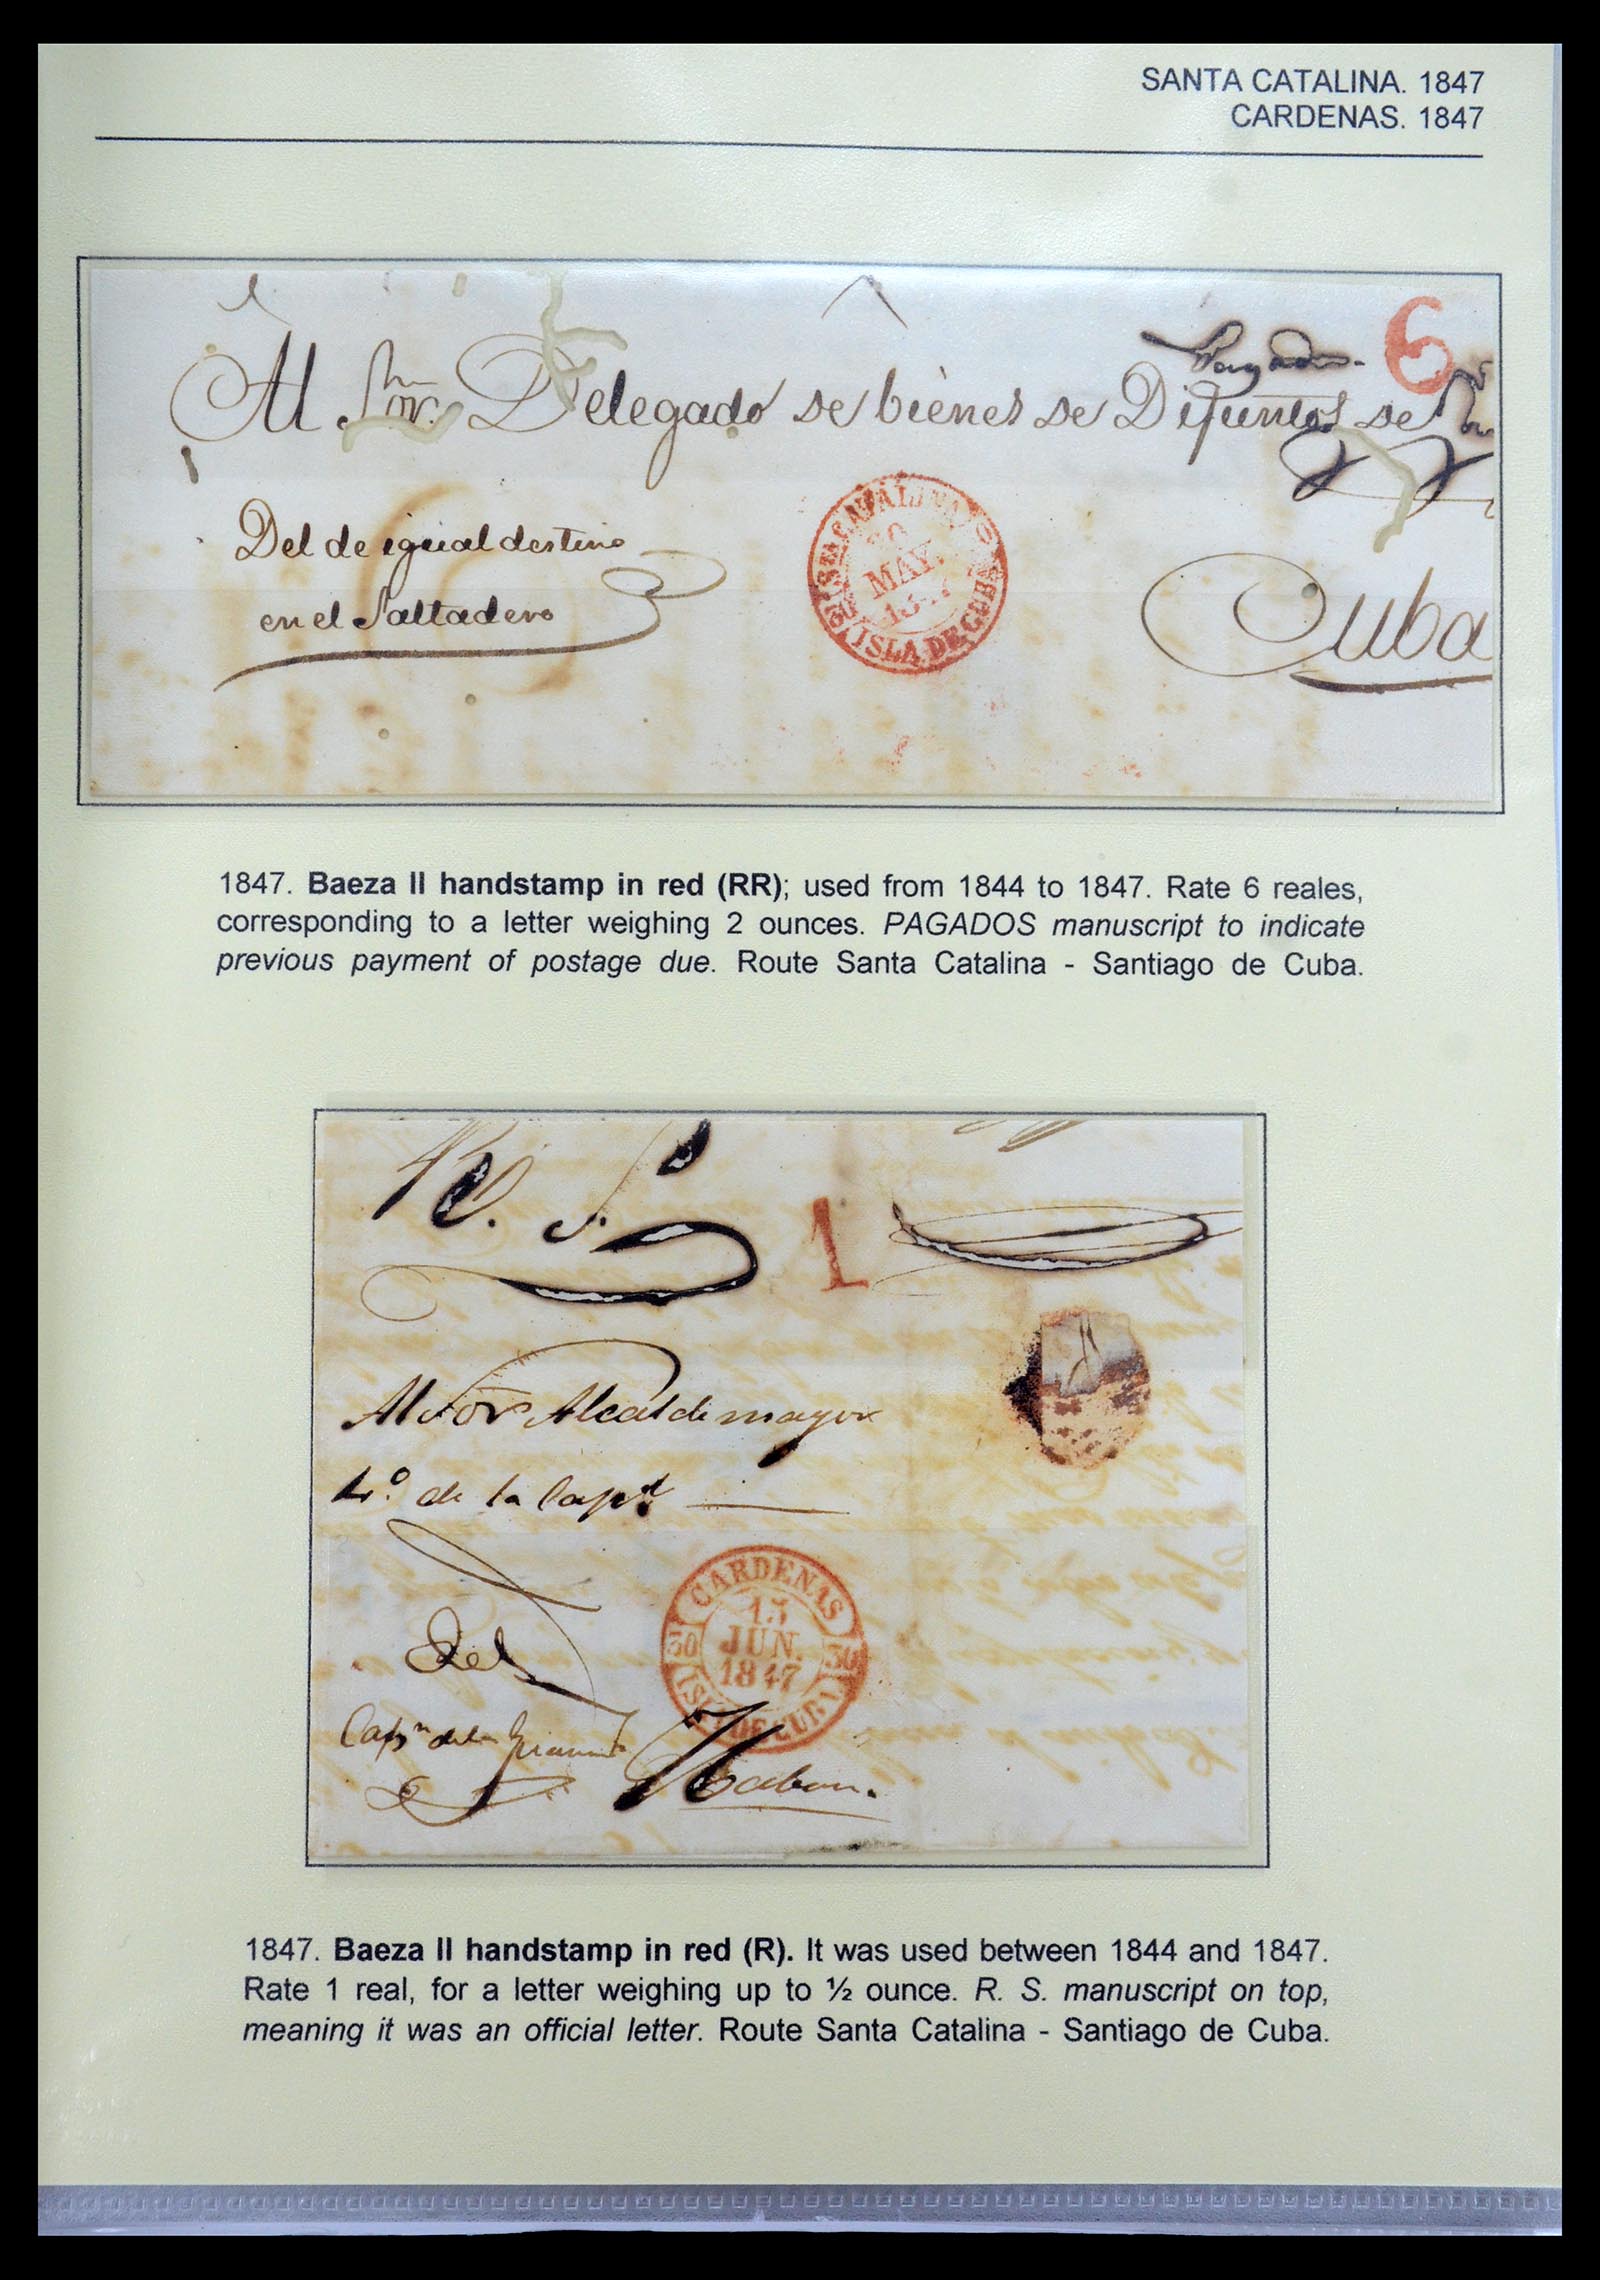 SANTA CATALINA. 1847
CARDENAS. 1847
Pagados
6
Al Sor. Delegado de bienes de Difuntos de
Del de igual destino
en el Saltadero
MAY.
ISLA DE CUBA
30
Cuba
1847. Baeza II handstamp in red (RR); used from 1844 to 1847. Rate 6 reales,
corresponding to a letter weighing 2 ounces. PAGADOS manuscript to indicate
previous payment of postage due. Route Santa Catalina - Santiago de Cuba.
R. S.
1
Al Sor Alcalde mayor
4.º de la Capl
CARDENAS
15
JUN.
1847
30 30
ISLA DE CUBA
Del
Capn de la
Habana.
1847. Baeza II handstamp in red (R). It was used between 1844 and 1847.
Rate 1 real, for a letter weighing up to ½ ounce. R. S. manuscript on top,
meaning it was an official letter. Route Santa Catalina - Santiago de Cuba.